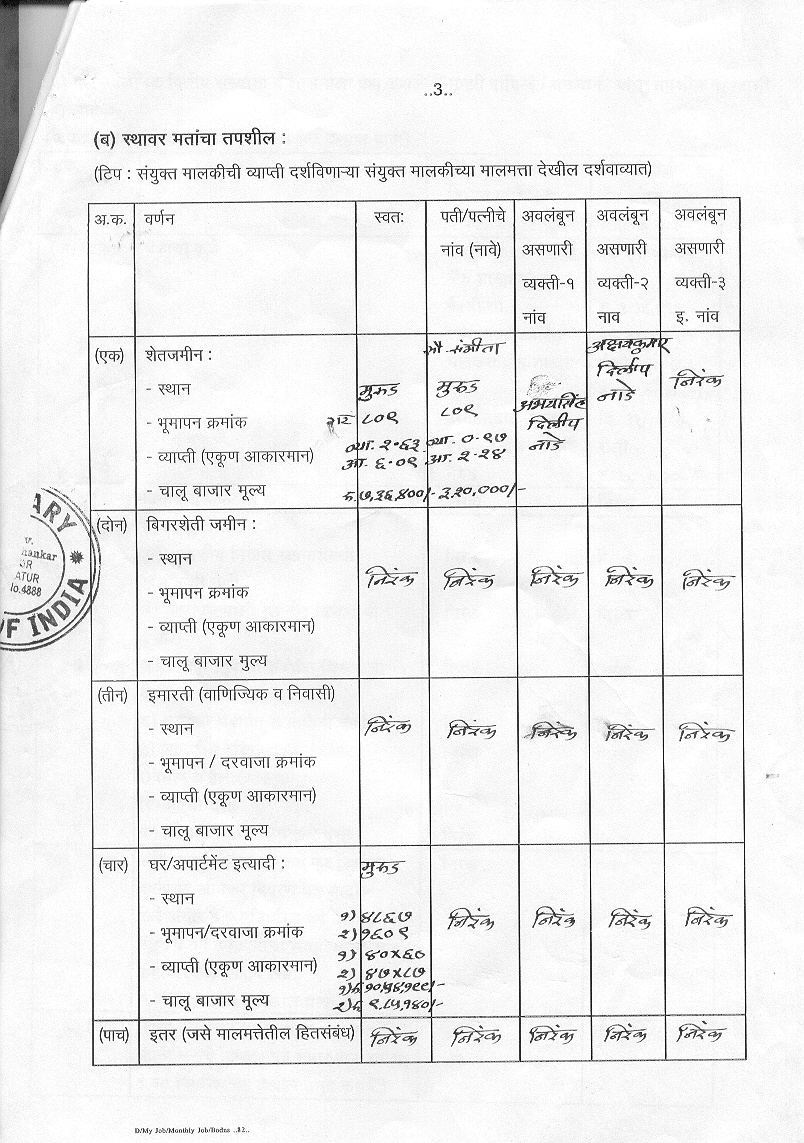 ..3..
(ब) स्थावर मतांचा तपशील :
(टिप : संयुक्त मालकीची व्याप्ती दर्शविणाऱ्या संयुक्त मालकीच्या मालमत्ता देखील दर्शवाव्यात)
अ.क. वर्णन स्वतः पती/पत्नीचे नांव (नावे) अवलंबून असणारी व्यक्ती-१ नांव अवलंबून असणारी व्यक्ती-२ नाव अवलंबून असणारी व्यक्ती-३ इ. नांव
(एक) शेतजमीन : सौ संगीता अक्षयकुमार दिलीप नाडे
- स्थान मुरुड मुरुड अभयसिंह दिलीप नाडे निरंक
- भूमापन क्रमांक गट ८०९ ८०९
- व्याप्ती (एकूण आकारमान) व्या. २.६३ व्या. ०.९७
आ. ६.०९ आ. २.२४
- चालू बाजार मूल्य रु.७,३६,४००/- ३,२०,०००/-
(दोन) बिगरशेती जमीन :
- स्थान निरंक निरंक निरंक निरंक निरंक
- भूमापन क्रमांक
- व्याप्ती (एकूण आकारमान)
- चालू बाजार मुल्य
(तीन) इमारती (वाणिज्यिक व निवासी)
- स्थान निरंक निरंक निरंक निरंक निरंक
- भूमापन / दरवाजा क्रमांक
- व्याप्ती (एकूण आकारमान)
- चालू बाजार मूल्य
(चार) घर/अपार्टमेंट इत्यादी : मुरुड
- स्थान
- भूमापन/दरवाजा क्रमांक १) ४८६७ निरंक निरंक निरंक निरंक
२) १६०९
- व्याप्ती (एकूण आकारमान) १) ४०x६०
२) ४७x८७
- चालू बाजार मूल्य
२) रु ९,८५,१४०/-
(पाच) इतर (जसे मालमत्तेतील हितसंबंध) निरंक निरंक निरंक निरंक निरंक
ARY
v.
hankar
ATUR
lo.4888
OF INDIA
D/My Job/Monthly Job/Bodns ..12..